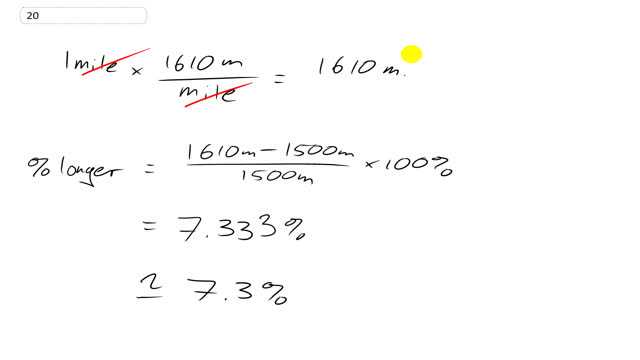 20
1 mile × 1610 m / mile = 1610 m.
% longer = 1610m – 1500m / 1500m × 100%
= 7.333%
≃ 7.3%